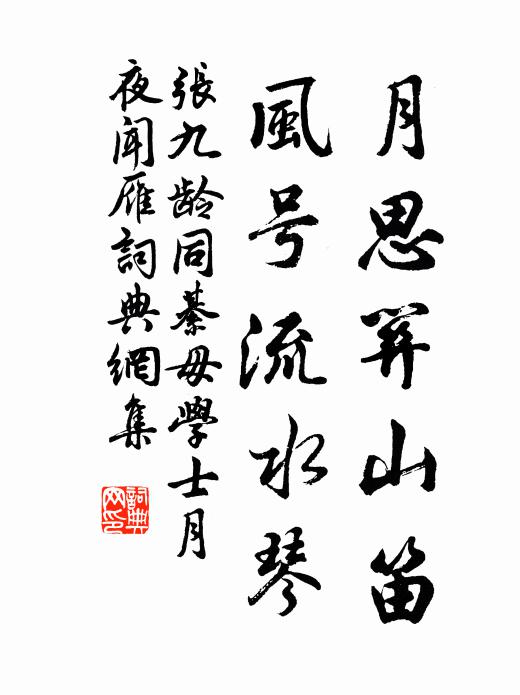 月思關山笛
風号流水琴
張九龄同綦毋學士月
夜聞雁詞典網集
詞典
网印